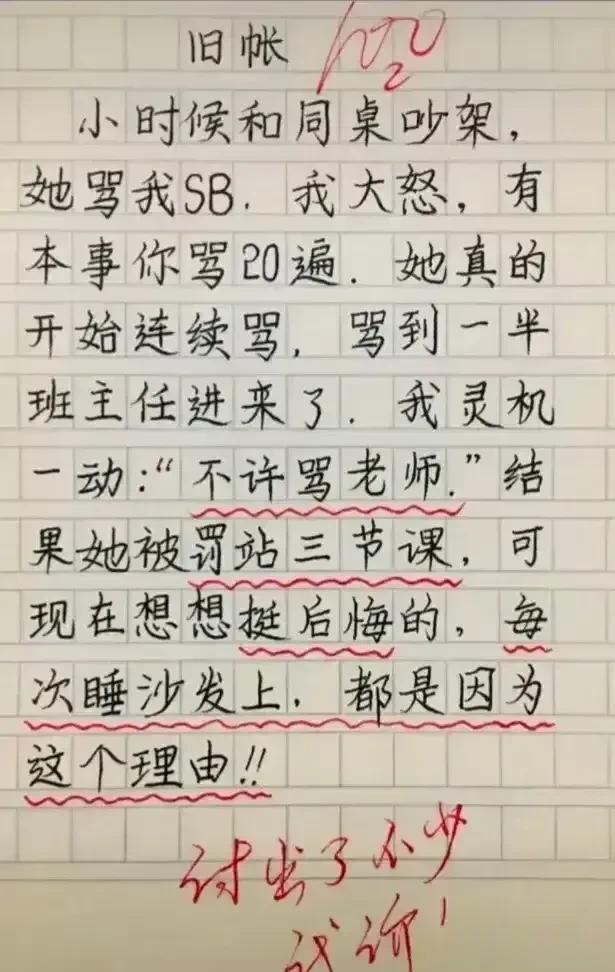 旧帐
100
小时候和同桌吵架，
她骂我SB. 我大怒，有
本事你骂20遍. 她真的
开始连续骂，骂到一半
班主任进来了. 我灵机
一动：“不许骂老师.”结
果她被罚站三节课，可
现在想想挺后悔的，每
次睡沙发上，都是因为
这个理由!!
付出了不少
代价！